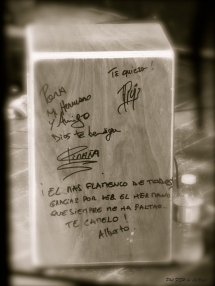 Para
mi hermano
y amigo
Dios te bendiga
TE QUIERO!
¡EL MAS FLAMENCO DE TODOS!
GRACIAS POR SER EL HERMANO
QUE SIEMPRE ME HA FALTADO.
TE CAMELO!
Alberto